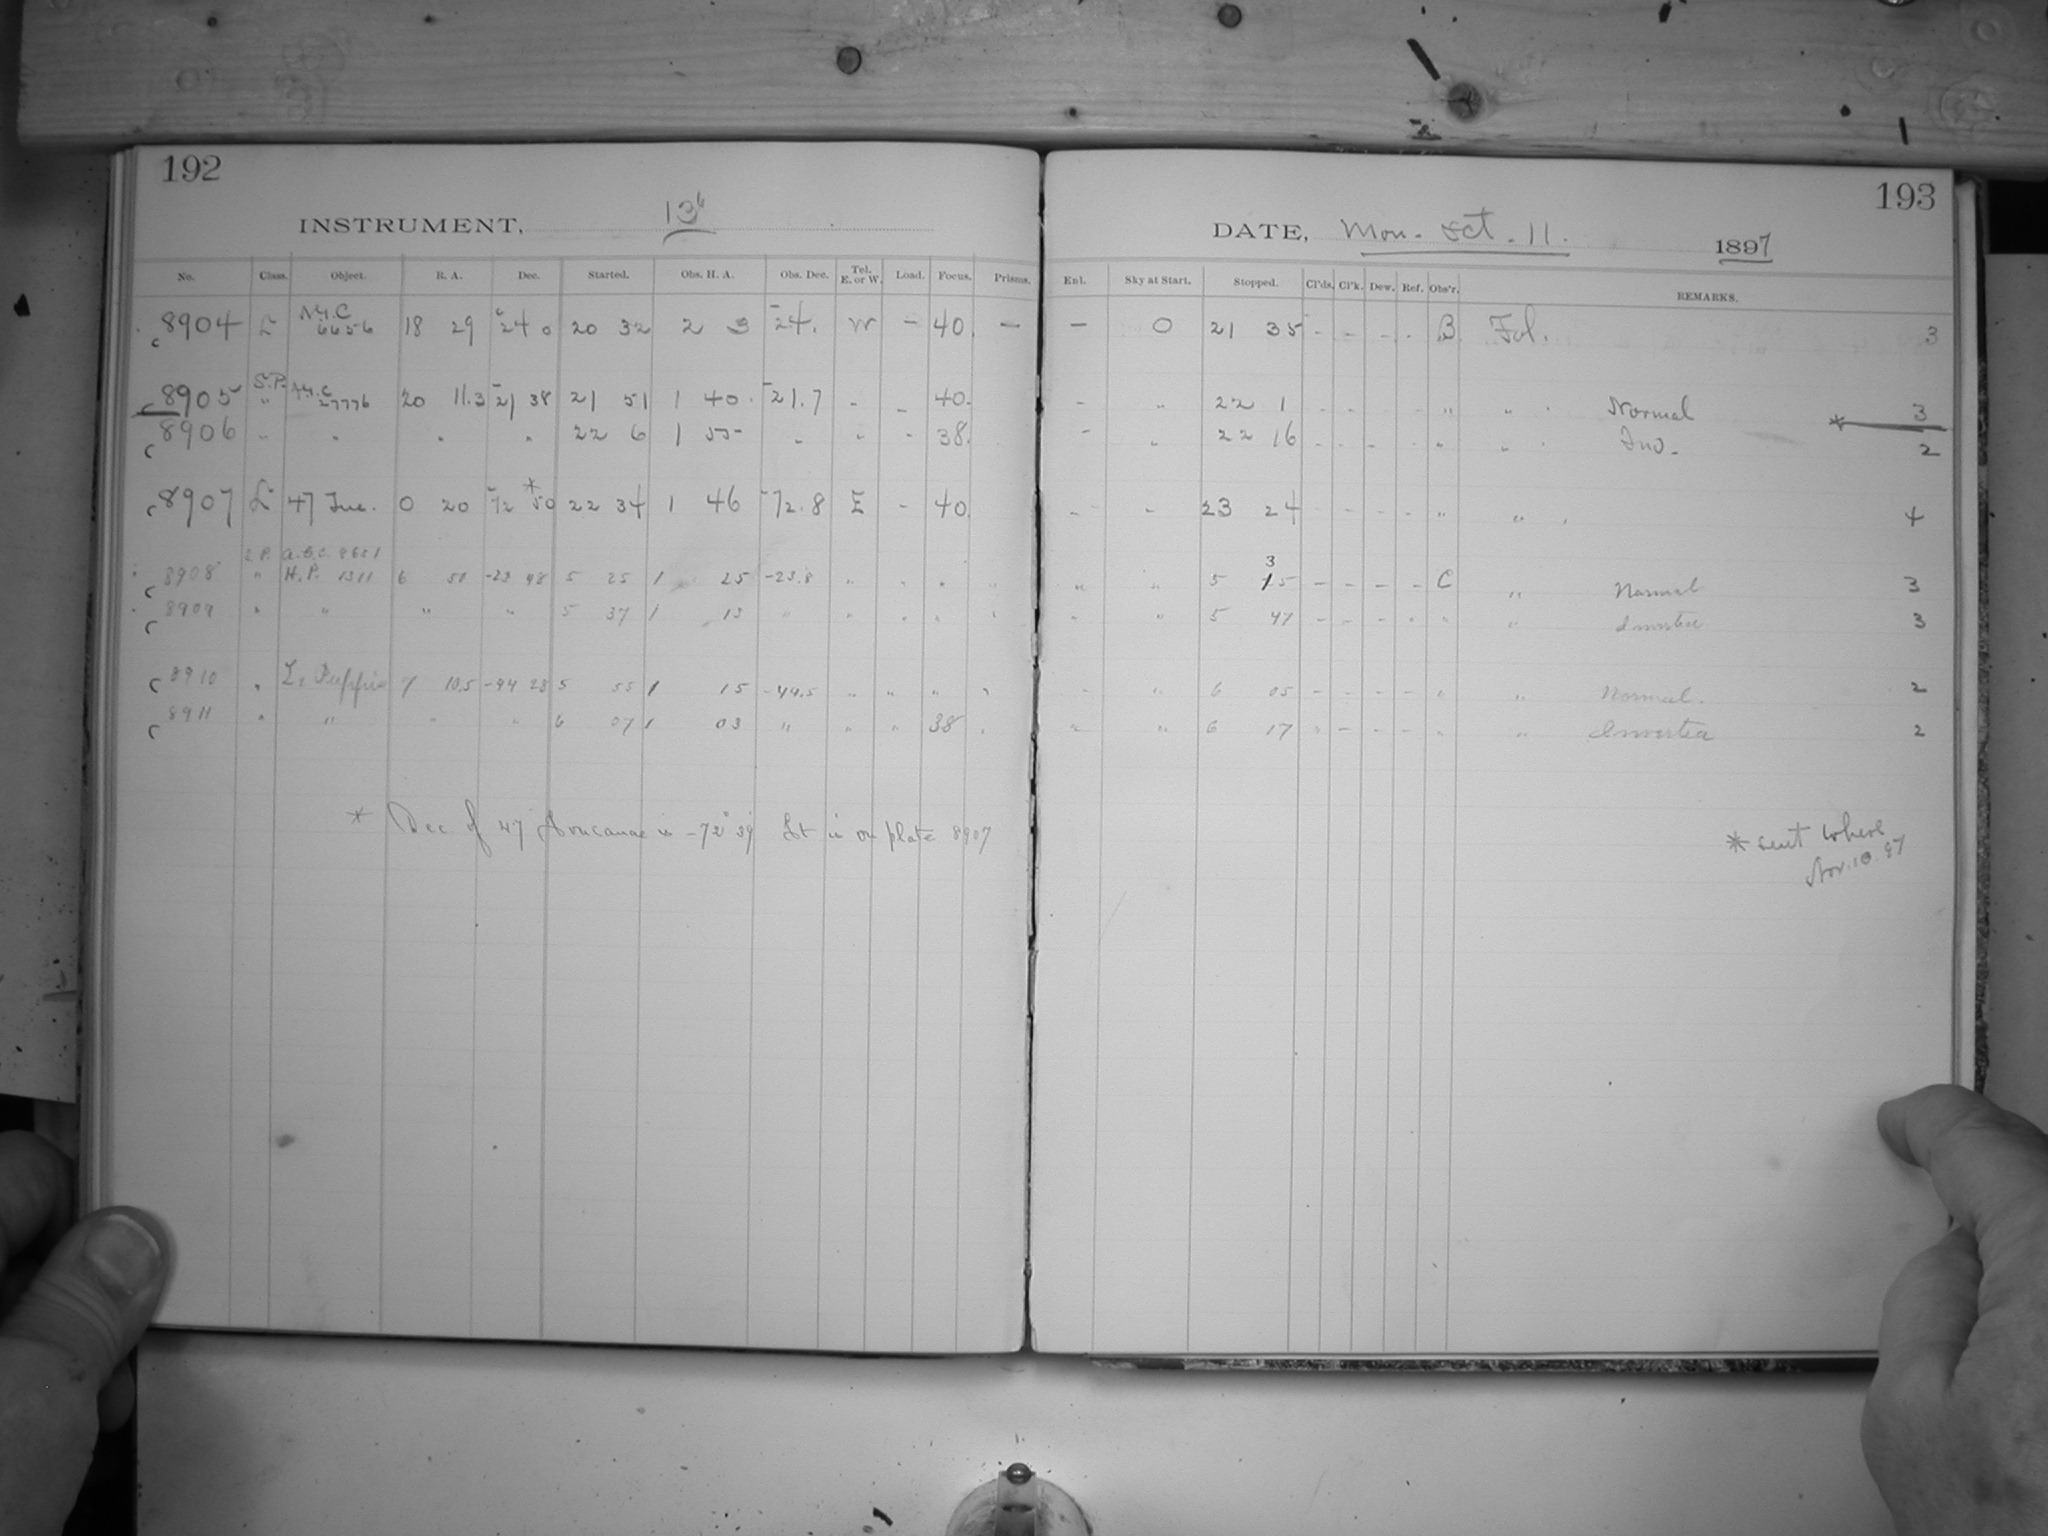 192
INSTRUMENT, 13
No. Class. Object. R. A. Dec. Started. Obs. H. A. Obs. Dec. Tel. E. or W. Load. Focus. Prisms.
8904 L 6656 18 29 -24 0 20 32 2 3 -24. W - 40. -
8905 S.P. 27776 20 11.3 -21 38 21 51 1 40. -21.7 - - 40.
8906 " " " " 22 6 1 55 " " - 38.
8907 L 47 Tuc. 0 20 -72 *50 22 34 1 46 -72.8 E - 40.
S.P. A.G.C.
8908 " H.P. 1311 6 51 -23 48 5 25 1 25 -23.8 " " " "
8909 " " " " 5 37 1 13 " " " " "
8910 " L2 Puppis 7 10.5 -44 28 5 55 1 15 -44.5 " " " "
8911 " " " " 6 07 1 03 " " " 38 "
* Dec of 47 Toucanae is -72° 39' It is on plate 8907
193
DATE, Mon. Oct. 11. 1897
Enl. Sky at Start. Stopped. Cl'ds. Cl'k. Dew. Ref. Obs'r. REMARKS.
- 0 21 35 - - - - B Fol. 3
- " 22 1 - - - - " " Normal 3
- " 22 16 - - - - " " Inv. * 2
- " 23 24 - - - - " " 4
" " 5 35 - - - - C " Normal 3
" " 5 47 - - - - " " Inverted 3
" " 6 05 - - - - " " Normal. 2
" " 6 17 - - - - " " Inverted 2
* sent where
Nov. 10. 97